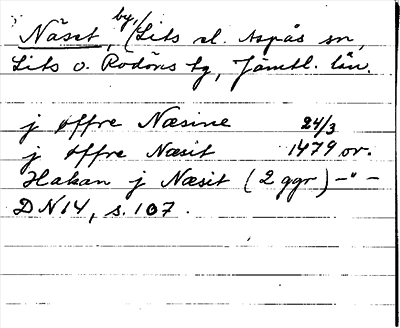 Näset, by, (Lits el. Aspås sn,
Lits o. Rödöns tg, Jämtl. län.
j øffre Næsine 24/3
j øffre Næsit 1479 or.
Hakan j Næsit (2 ggr) –"–
DN14, s. 107.